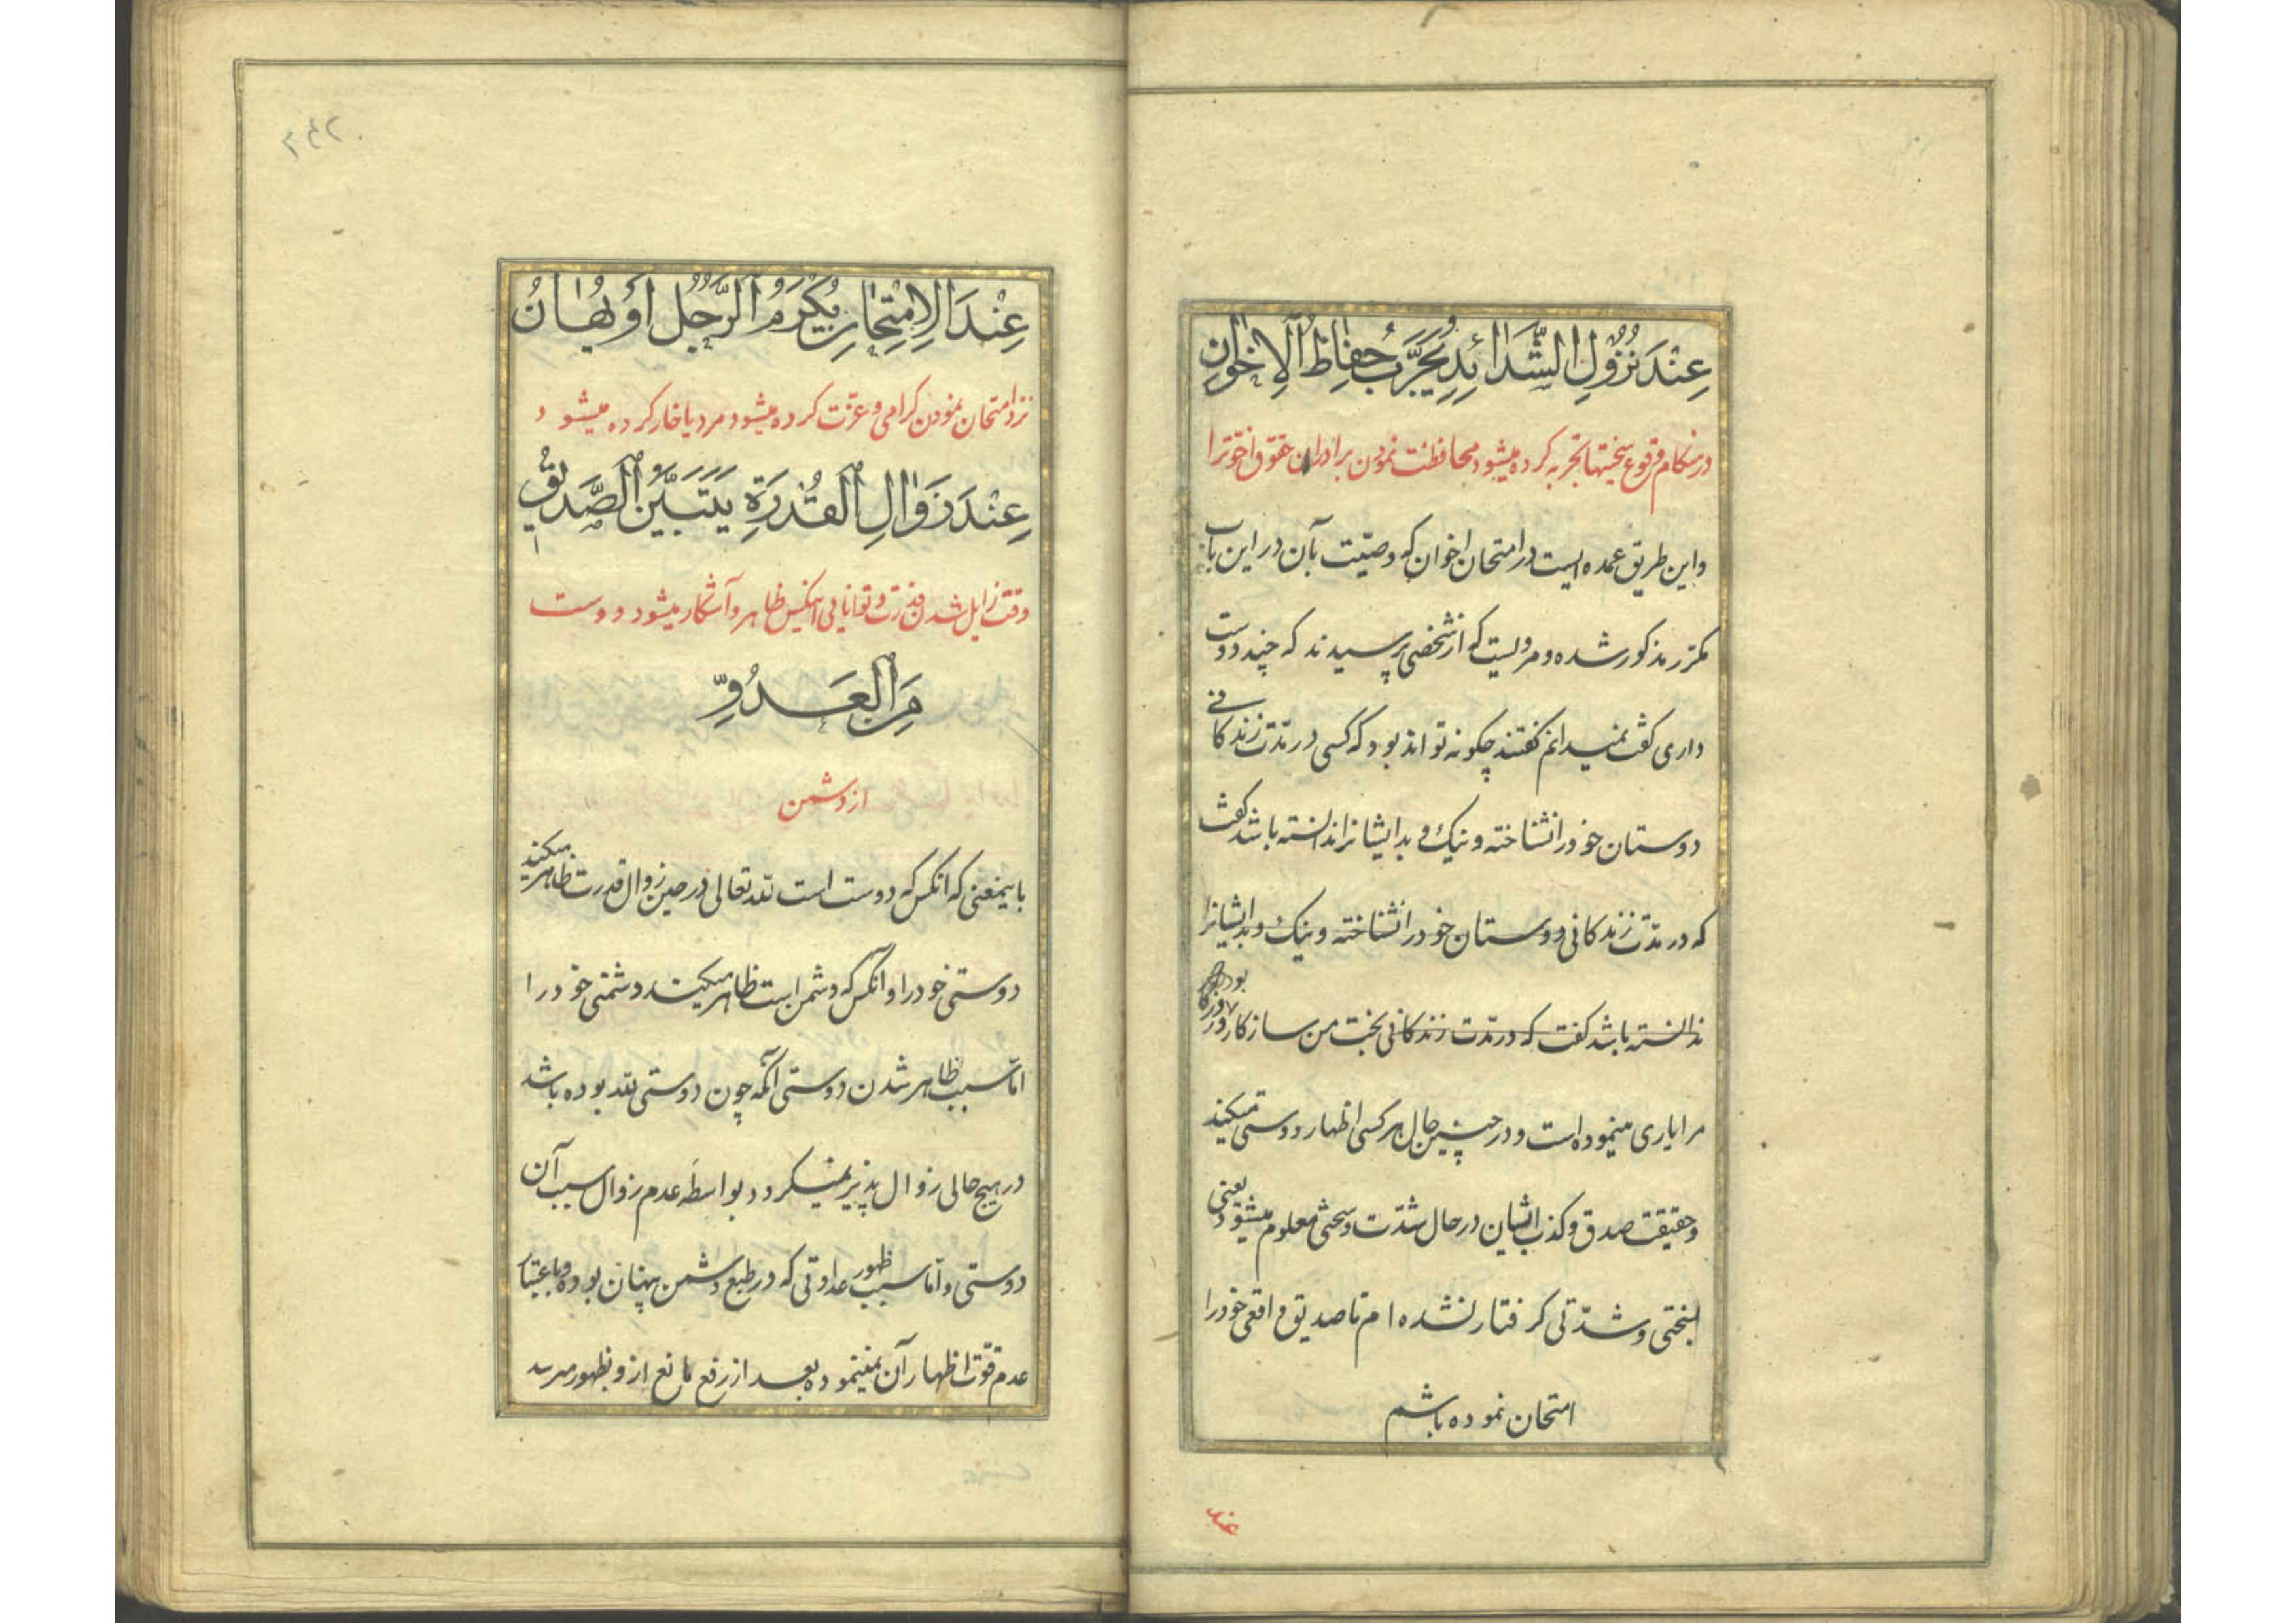 عِنْدَ نُزُولِ الشَّدَائِدِ يُجَرَّبُ حِفَاظُ الْاِخْوَانِ
در هنكام وقوع سختيها تجربه كرده ميشود محافظت نمودن برادران حقوق اخوترا
واين طريق عمده ايست در امتحان اخوان كه وصيّت بآن در اين باب
مكرّر مذكور شده و مرويست كه از شخصى پرسيدند كه چند دوست
دارى كفت نميدانم كفتند چكونه تواند بود كه كسى در مدّت زندكانى
دوستان خود را نشناخته و نيك و بد ايشانرا ندانسته باشد كفت
كه در مدّت زندكانى دوستان خود را نشناخته و نيك و بد ايشانرا
ندانسته باشد كفت كه در مدّت زندكانى بخت من سازكار بوده و روزكار
مرا يارى مينموده است و در چنين حال هر كسى اظهار دوستى ميكند
و حقيقت صدق و كذب ايشان در حال شدّت و سختى معلوم ميشود يعنى
بسختى و شدّتى كرفتار نشده ام تا صديق واقعى خود را
امتحان نموده باشم
عند
۲۴۲
عِنْدَ الْاِمْتِحَانِ يُكْرَمُ الرَّجُلُ اَوْ يُهَانُ
نزد امتحان نمودن كرامى و عزّت كرده ميشود مرد يا خار كرده ميشود
عِنْدَ زَوَالِ الْقُدْرَةِ يَتَبَيَّنُ الصَّدِيقُ
وقت زايل شدن قدرت و توانايى اينكس ظاهر و آشكار ميشود دوست
مِنَ الْعَدُوِّ
از دشمن
باينمعنى كه آنكس كه دوست است لله تعالى در حين زوال قدرت ظاهر ميكند
دوستى خود را و آنكس كه دشمن است ظاهر ميكند دشمنى خود را
امّا سبب ظاهر شدن دوستى آنكه چون دوستى لله بوده باشد
در هيچ حالى زوال پذير نميكردد بواسطه عدم زوال سبب آن
دوستى و امّا سبب ظهور عداوتى كه در طبع دشمن پنهان بوده و باعتبار
عدم قوّت اظهار آن نمينموده بعد از رفع مانع ازو بظهور ميرسد